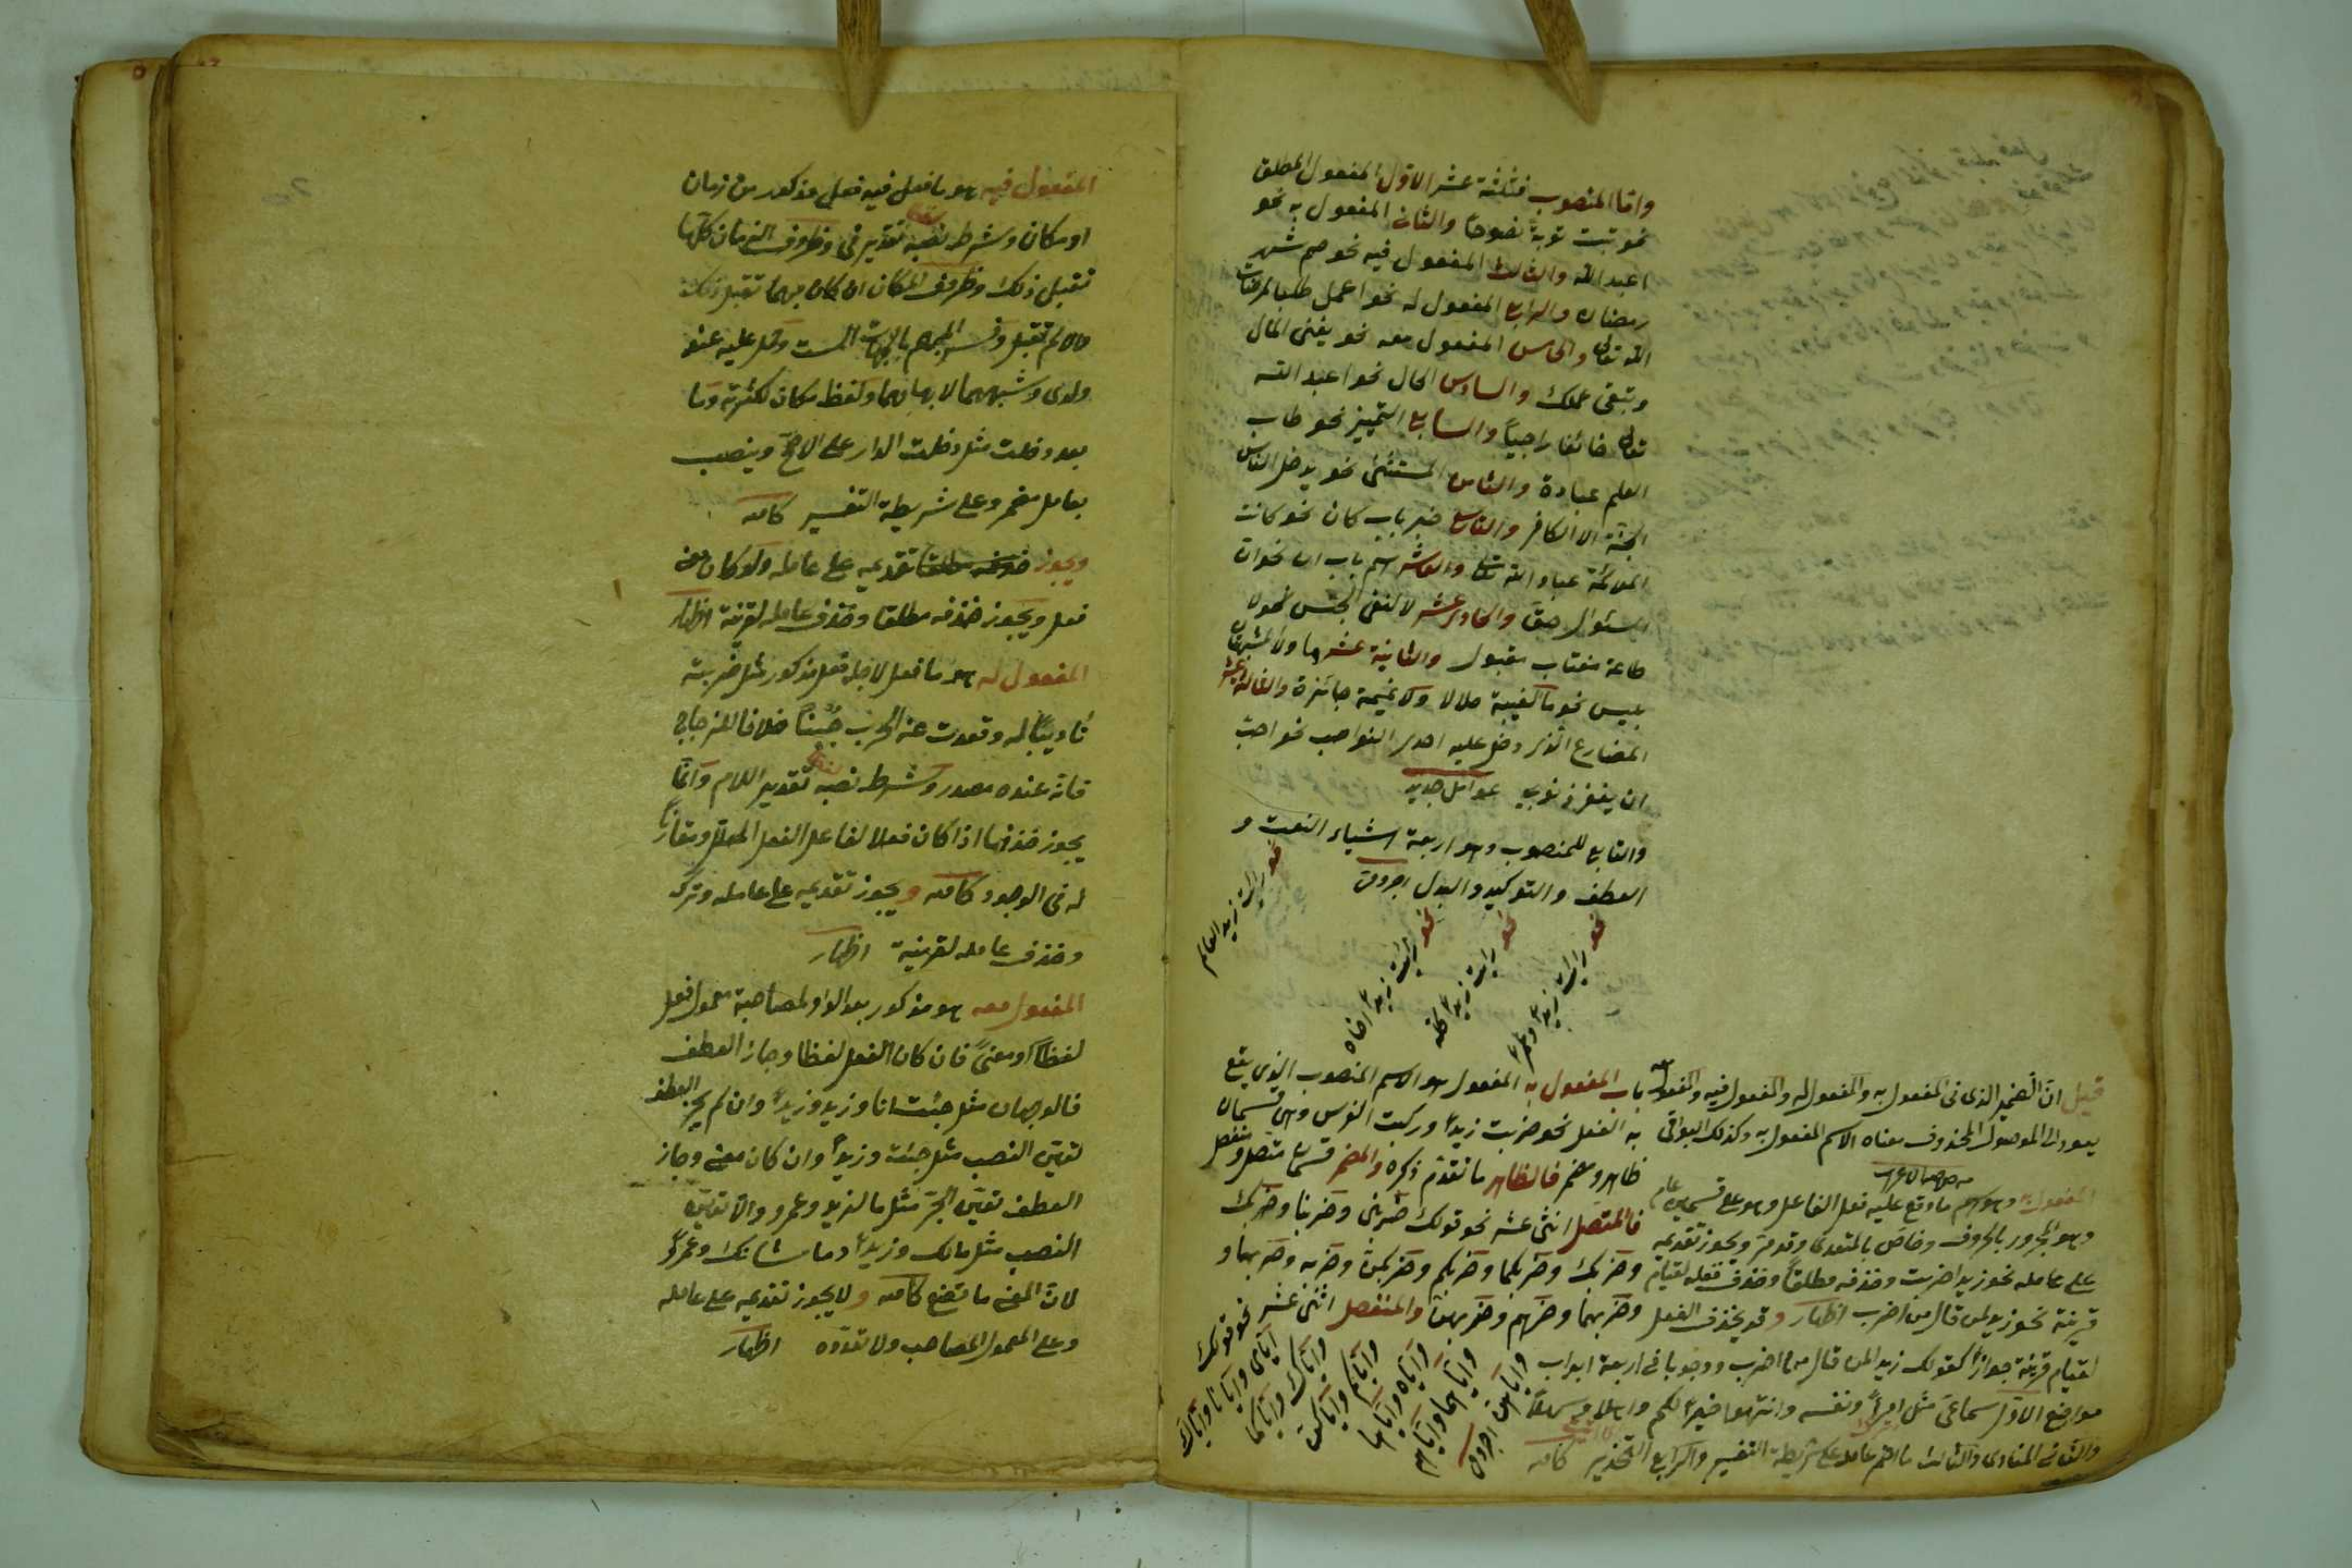 واما المنصوب فثلثة عشر الاول المفعول المطلق
نحو تبت توبة نصوحا والثانى المفعول به نحو
اعبد الله والثالث المفعول فيه نحو صم شهر
رمضان والرابع المفعول له نحو اعمل طلبا لمرضات
الله تعالى والخامس المفعول معه نحو يفنى المال
وتبقى عملك والسادس الحال نحو اعبد الله
تعالى خائفا راجيا والسابع التمييز نحو طاب
العلم عبادة والثامن المستثنى نحو يدخل الناس
الجنة الا الكافر والتاسع خبر باب كان نحو كانت
الملائكة عباد الله تعالى والعاشر اسم باب ان نحو ان
السئوال حق والحادى عشر لا لنفى الجنس نحو لا
طاعة مغتاب مقبول والثانية عشر ما ولا المشبهتان
بليس نحو ما الغيبة حلالا ولا نميمة جائزة والثالثة عشر
المضارع الذى دخل عليه احدى النواصب نحو احب
ان يغفر ذنوبى عوامل جديد
والتابع للمنصوب وهو اربعة اشياء النعت و
العطف والتوكيد والبدل اجرومى
نحو رايت زيد العالم
نحو رايت زيدا اخاه
نحو رايت زيدا كله
نحو رايت زيدا وعمرا
باب المفعول به المفعول هو الاسم المنصوب الذى يقع
به الفعل نحو ضربت زيدا وركبت الفرس وهى قسمان
ظاهر ومضمر فالظاهر ما تقدم ذكره والمضمر قسمان متصل ومنفصل
فالمتصل اثنى عشر نحو قولك ضربنى وضربنا وضربك
وضربك وضربكما وضربكم وضربكن وضربه وضربها و
وضربهما وضربهم وضربهن والمنفصل اثنى عشر نحو قولك
اياى وايانا واياك
واياك واياكما
واياكم واياكن
واياه واياها
واياهما واياهم
واياهن اجرومى
قيل ان الضمير الذى فى المفعول به والمفعول له والمفعول فيه والمفعول معه
يعود الى الموصول المحذوف معناه الاسم المفعول به وكذلك البواقى
المفعول به وهو اسم ما وقع عليه فعل الفاعل وهو على قسمين عام
وهو المجرور بالحروف وخاص بالمتعدى وقد مر ويجوز تقديمه
على عامله نحو زيدا ضربت وحذفه مطلقا وحذف فعله لقيام
قرينة نحو زيد لمن قال من اضرب اظهار وقد يحذف الفعل
لقيام قرينة جوازا كقولك زيدا لمن قال من اضرب ووجوبا فى اربعة ابواب
مواضع الاول سماعى مثل امرأ ونفسه وانتهوا خيرا لكم واهلا وسهلا
والثانى المنادى والثالث ما اضمر عامله على شريطة التفسير والرابع التحذير كافيه
المفعول فيه هو ما فعل فيه فعل مذكور من زمان
او مكان وشرط نصبه تقدير فى وظروف الزمان كلها
تقبل ذلك وظروف المكان ان كان مبهما تقبل ذلك
والا لم تقبل وفسر المبهم بالجهات الست وحمل عليه عند
ولدى وشبههما لابهامهما ولفظ مكان لكثرته وما
بعد دخلت مثل دخلت الدار على الاصح وينصب
بعامل مضمر وعلى شريطة التفسير كافيه
ويجوز تقديمه على عامله ولو كان معنى
فعل ويجوز حذفه مطلقا وحذف عامله لقرينة اظهار
المفعول له هو ما فعل لاجله فعل مذكور مثل ضربته
تأديبا له وقعدت عن الحرب جبنا خلافا للزجاج
فانه عنده مصدر وشرط نصبه تقدير اللام وانما
يجوز حذفها اذا كان فعلا لفاعل الفعل المعلل ومقارنا
له فى الوجود كافيه ويجوز تقديمه على عامله وتركه
وحذف عامله لقرينة اظهار
المفعول معه هو مذكور بعد الواو لمصاحبة معمول فعل
لفظا او معنى فان كان الفعل لفظا وجاز العطف
فالوجهان مثل جئت انا وزيد وزيدا وان لم يجز العطف
تعين النصب مثل جئت وزيدا وان كان معنى وجاز
العطف تعين الجر مثل ما لزيد وعمرو والا تعين
النصب مثل مالك وزيدا وما شانك وعمرا
لان المعنى ما تصنع كافيه ولا يجوز تقديمه على عامله
وعلى المعمول المصاحب ولا تعدده اظهار